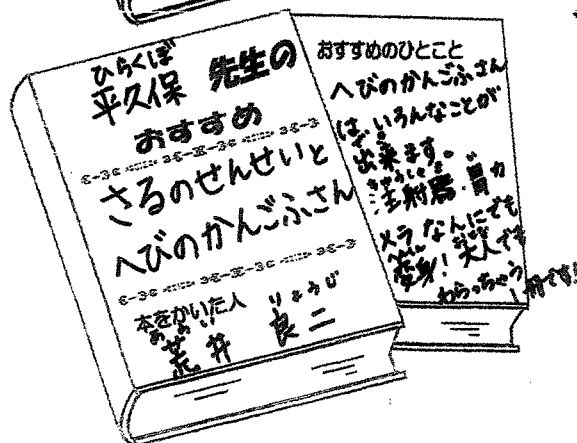 ひらくぼ
平久保 先生の
おすすめ
さるのせんせいと
へびのかんごふさん
本をかいた人
あらい りょうじ
荒井 良二
おすすめのひとこと
へびのかんごふさん
は いろんなことが
でき
出来ます。
ちゅうしゃき
注射器、胃カ
メラ なんにでも
へんしん おとな
変身!大人でも
わらっちゃう
一冊です!!